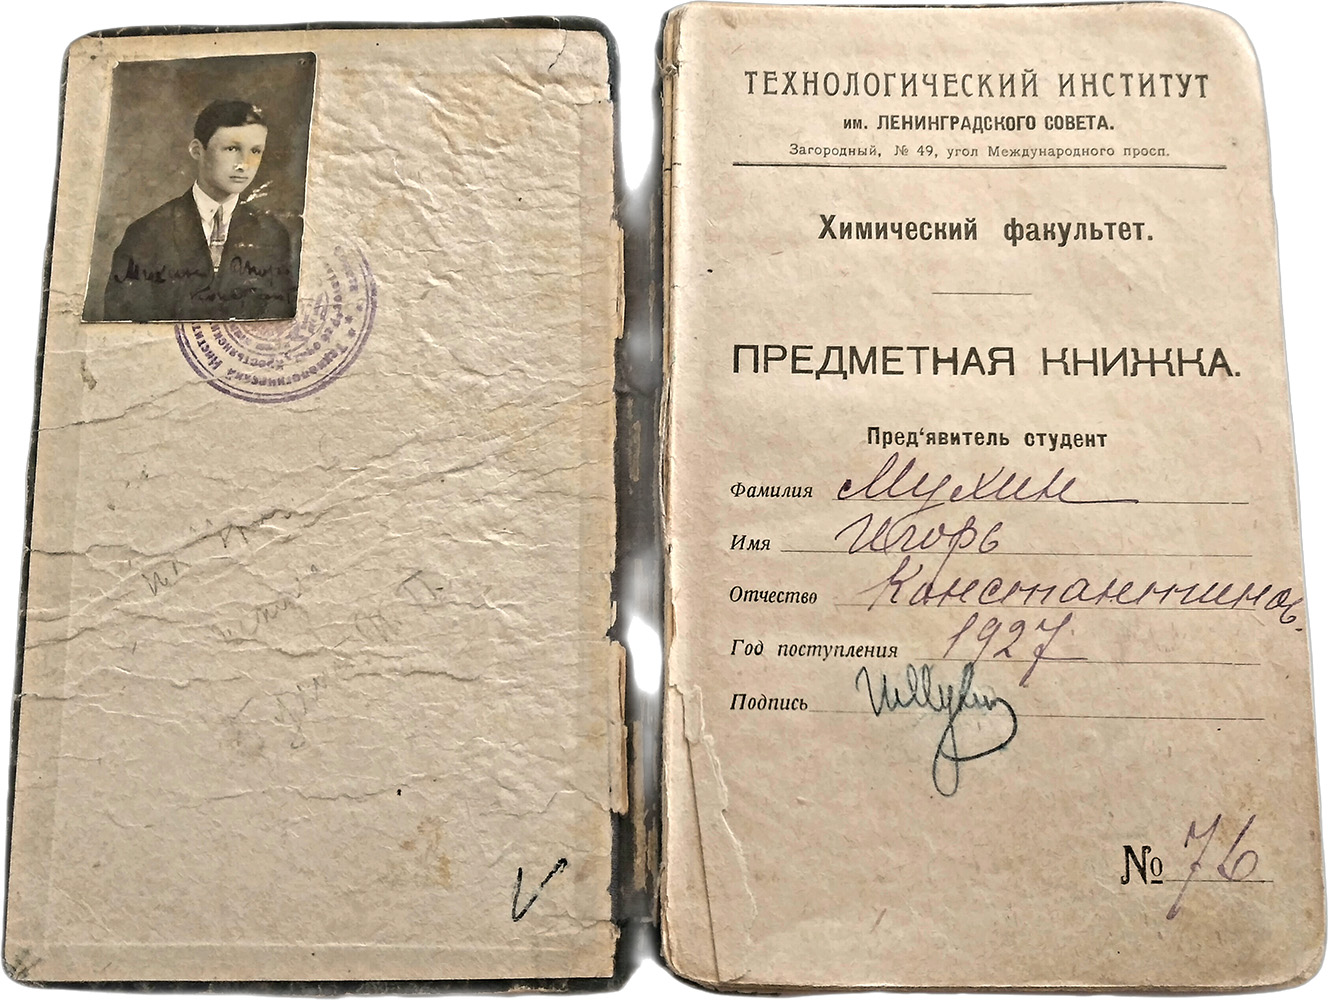 Мухин Игорь
ТЕХНОЛОГИЧЕСКИЙ ИНСТИТУТ
им. ЛЕНИНГРАДСКОГО СОВЕТА.
Загородный, № 49, угол Международного просп.
Химический факультет.
ПРЕДМЕТНАЯ КНИЖКА.
Пред‘явитель студент
Фамилия Мухин
Имя Игорь
Отчество Константинов.
Год поступления 1927
Подпись ИМухин
№ 76